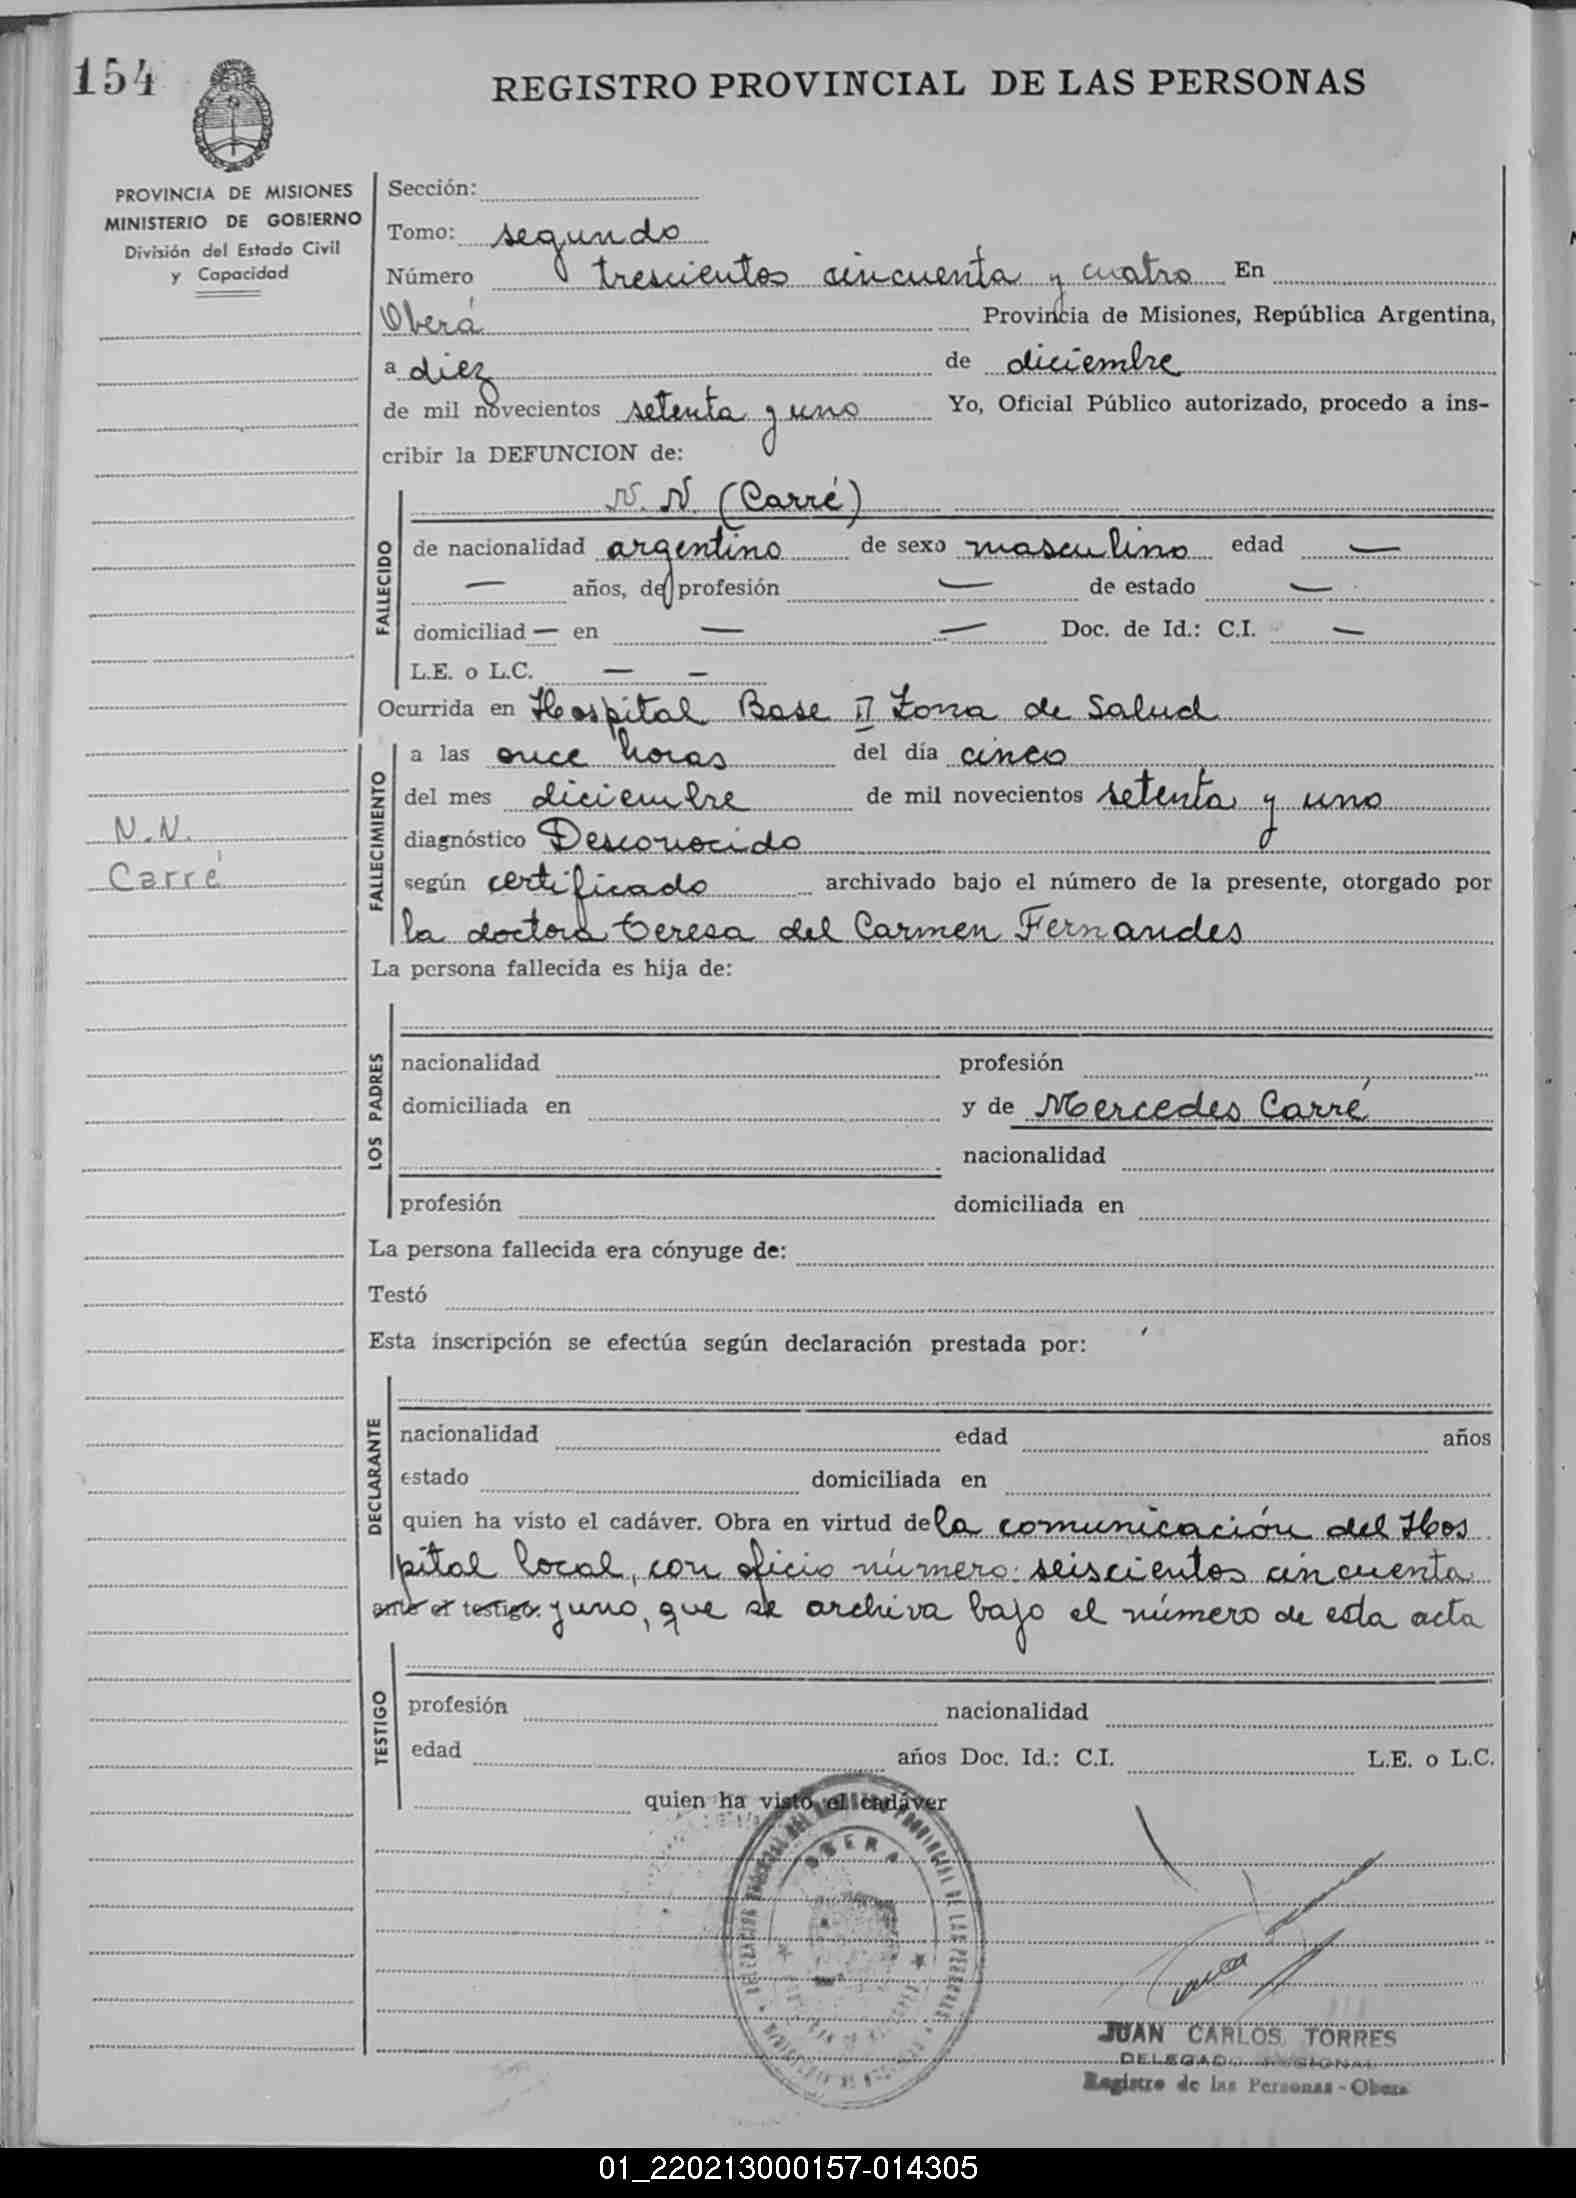 154
REGISTRO PROVINCIAL DE LAS PERSONAS
PROVINCIA DE MISIONES
MINISTERIO DE GOBIERNO
División del Estado Civil
y Capacidad
Sección:
Tomo: segundo
Número trescientos cincuenta y cuatro En
Oberá Provincia de Misiones, República Argentina,
a diez de diciembre
de mil novecientos setenta y uno Yo, Oficial Público autorizado, procedo a ins-
cribir la DEFUNCION de:
FALLECIDO
N. N. (Carré)
de nacionalidad argentino de sexo masculino edad —
— años, de profesión — de estado —
domiciliad — en — — Doc. de Id.: C.I. —
L.E. o L.C. — –
Ocurrida en Hospital Base II Zona de Salud
FALLECIMIENTO
a las once horas del día cinco
del mes diciembre de mil novecientos setenta y uno
diagnóstico Desconocido
según certificado archivado bajo el número de la presente, otorgado por
la doctora Teresa del Carmen Fernandes
N.N.
Carré
La persona fallecida es hija de:
LOS PADRES
nacionalidad profesión
domiciliada en y de Mercedes Carré
nacionalidad
profesión domiciliada en
La persona fallecida era cónyuge de:
Testó
Esta inscripción se efectúa según declaración prestada por:
DECLARANTE
nacionalidad edad años
estado domiciliada en
quien ha visto el cadáver. Obra en virtud de la comunicación del Hos
pital local, con oficio número: seiscientos cincuenta
ante el testigo: y uno, que se archiva bajo el número de esta acta
TESTIGO
profesión nacionalidad
edad años Doc. Id.: C.I. L.E. o L.C.
quien ha visto el cadáver
OBERA
JUAN CARLOS TORRES
DELEGADO
Registro de las Personas - Obera
01_220213000157-014305